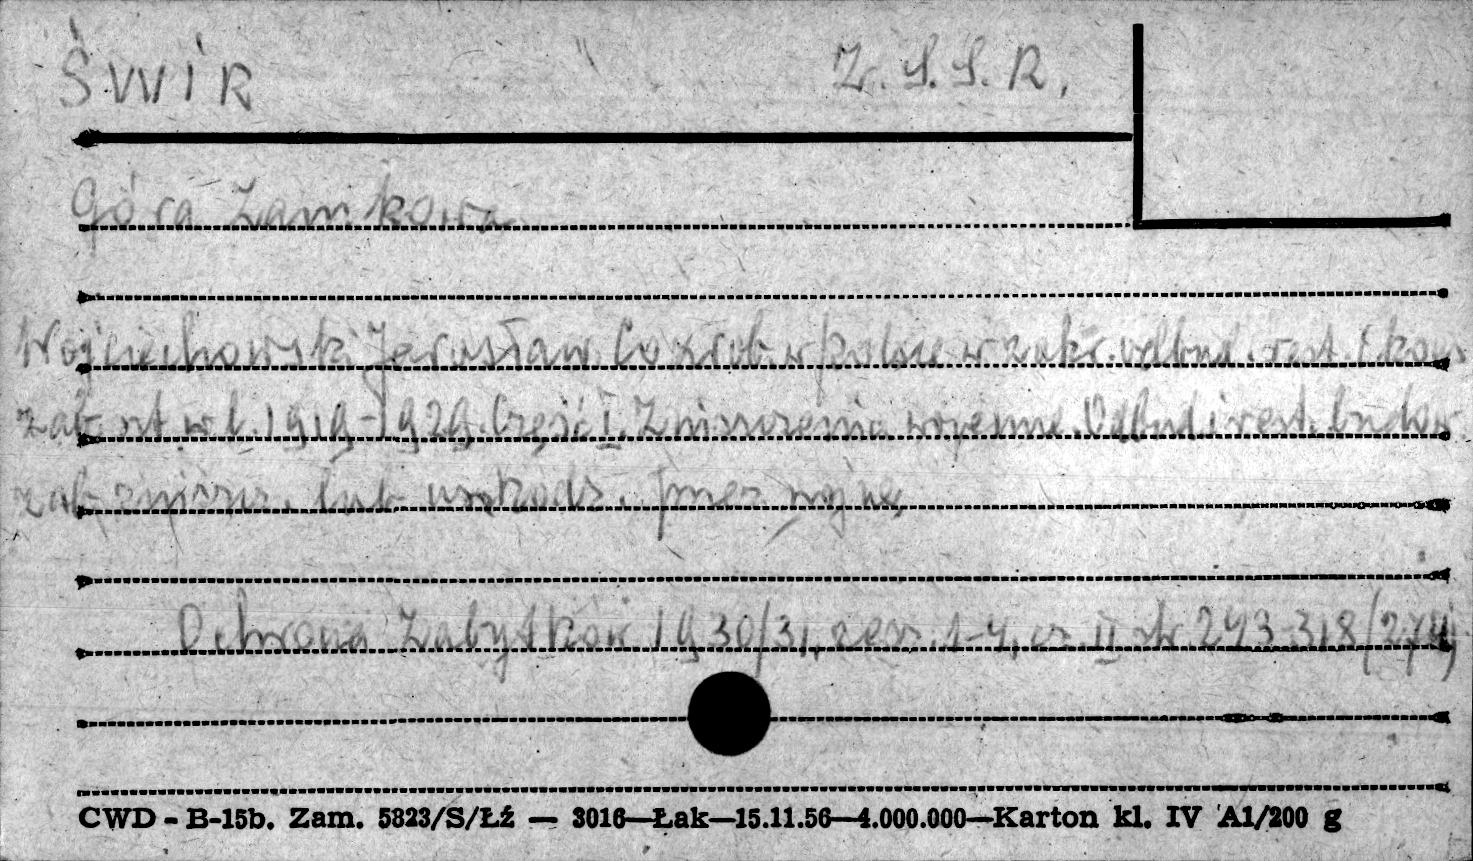 ŚWIR Z.S.S.R.
Góra Zamkowa
Wojciechowski Jarosław. Co zrob. w Polsce w zakr. odbud. rest. i kons
zab. szt. w l. 1919-1929. Część I. Zniszczenia wojenne. Odbud. i rest. budow
zab. zniszcz. lub uszkodz. przez wojnę
Ochrona Zabytków 1930/31, zesz. 1-4, cz. II str. 243-318 (274)
CWD - B-15b. Zam. 5823/S/Łź — 3016—Łak—15.11.56—4.000.000—Karton kl. IV A1/200 g